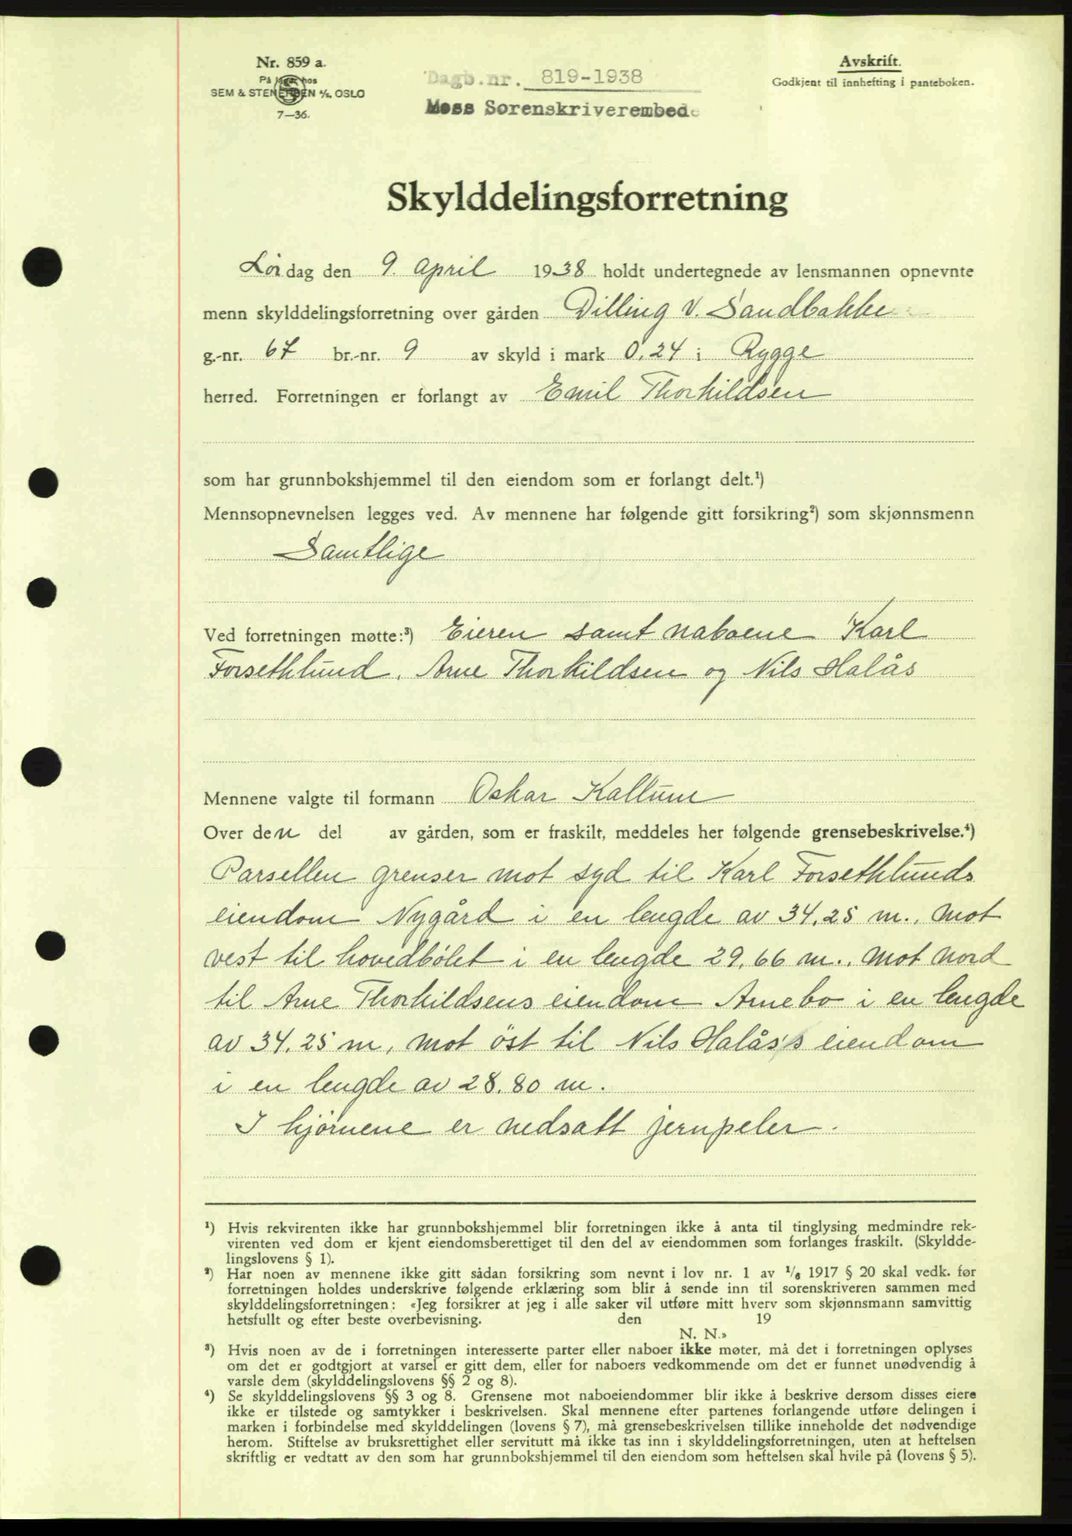 Nr. 859 a.
På lager hos
SEM & STENERSEN A/S, OSLO
7—36.
Dagb.nr. 819-1938
Moss Sorenskriverembede
Avskrift.
Godkjent til innhefting i panteboken.
Skylddelingsforretning
Lördag den 9. april 1938 holdt undertegnede av lensmannen opnevnte
menn skylddelingsforretning over gården Dilling V. Sandbakke
g.-nr. 67 br.-nr. 9 av skyld i mark 0,24 i Rygge
herred. Forretningen er forlangt av Emil Thorkildsen
som har grunnbokshjemmel til den eiendom som er forlangt delt.¹)
Mennsopnevnelsen legges ved. Av mennene har følgende gitt forsikring²) som skjønnsmenn
Samtlige
Ved forretningen møtte:³) Eieren samt naboene Karl
Forsethlund, Arne Thorkildsen og Nils Halås
Mennene valgte til formann Oskar Kallum
Over den del av gården, som er fraskilt, meddeles her følgende grensebeskrivelse.⁴)
Parsellen grenser mot syd til Karl Forsethlunds
eiendom Nygård i en lengde av 34,25 m., mot
vest til hovedbölet i en lengde 29,66 m., mot nord
til Arne Thorkildsens eiendom Arnebo i en lengde
av 34,25 m, mot öst til Nils Halås's eiendom
i en lengde av 28,80 m.
I hjörnene er nedsatt jernpeler.
¹) Hvis rekvirenten ikke har grunnbokshjemmel blir forretningen ikke å anta til tinglysing medmindre rek-
virenten ved dom er kjent eiendomsberettiget til den del av eiendommen som forlanges fraskilt. (Skyldde-
lingslovens § 1).
²) Har noen av mennene ikke gitt sådan forsikring som nevnt i lov nr. 1 av ¹/₆ 1917 § 20 skal vedk. før
forretningen holdes underskrive følgende erklæring som blir å sende inn til sorenskriveren sammen med
skylddelingsforretningen: «Jeg forsikrer at jeg i alle saker vil utføre mitt hverv som skjønnsmann samvittig
hetsfullt og efter beste overbevisning. den 19
N. N.»
³) Hvis noen av de i forretningen interesserte parter eller naboer ikke møter, må det i forretningen oplyses
om det er godtgjort at varsel er gitt dem, eller for naboers vedkommende om det er funnet unødvendig å
varsle dem (skylddelingslovens §§ 2 og 8).
⁴) Se skylddelingslovens §§ 3 og 8. Grensene mot naboeiendommer blir ikke å beskrive dersom disses eiere
ikke er tilstede og samtykker i beskrivelsen. Skal mennene efter partenes forlangende utføre delingen i
marken i forbindelse med skylddelingen (lovens § 7), må grensebeskrivelsen tillike inneholde det nødvendige
herom. Stiftelse av bruksrettighet eller servitutt må ikke tas inn i skylddelingsforretningen, uten at heftelsen
skriftlig er vedtatt av den som har grunnbokshjemmel til den eiendom som heftelsen skal hvile på (lovens § 5).